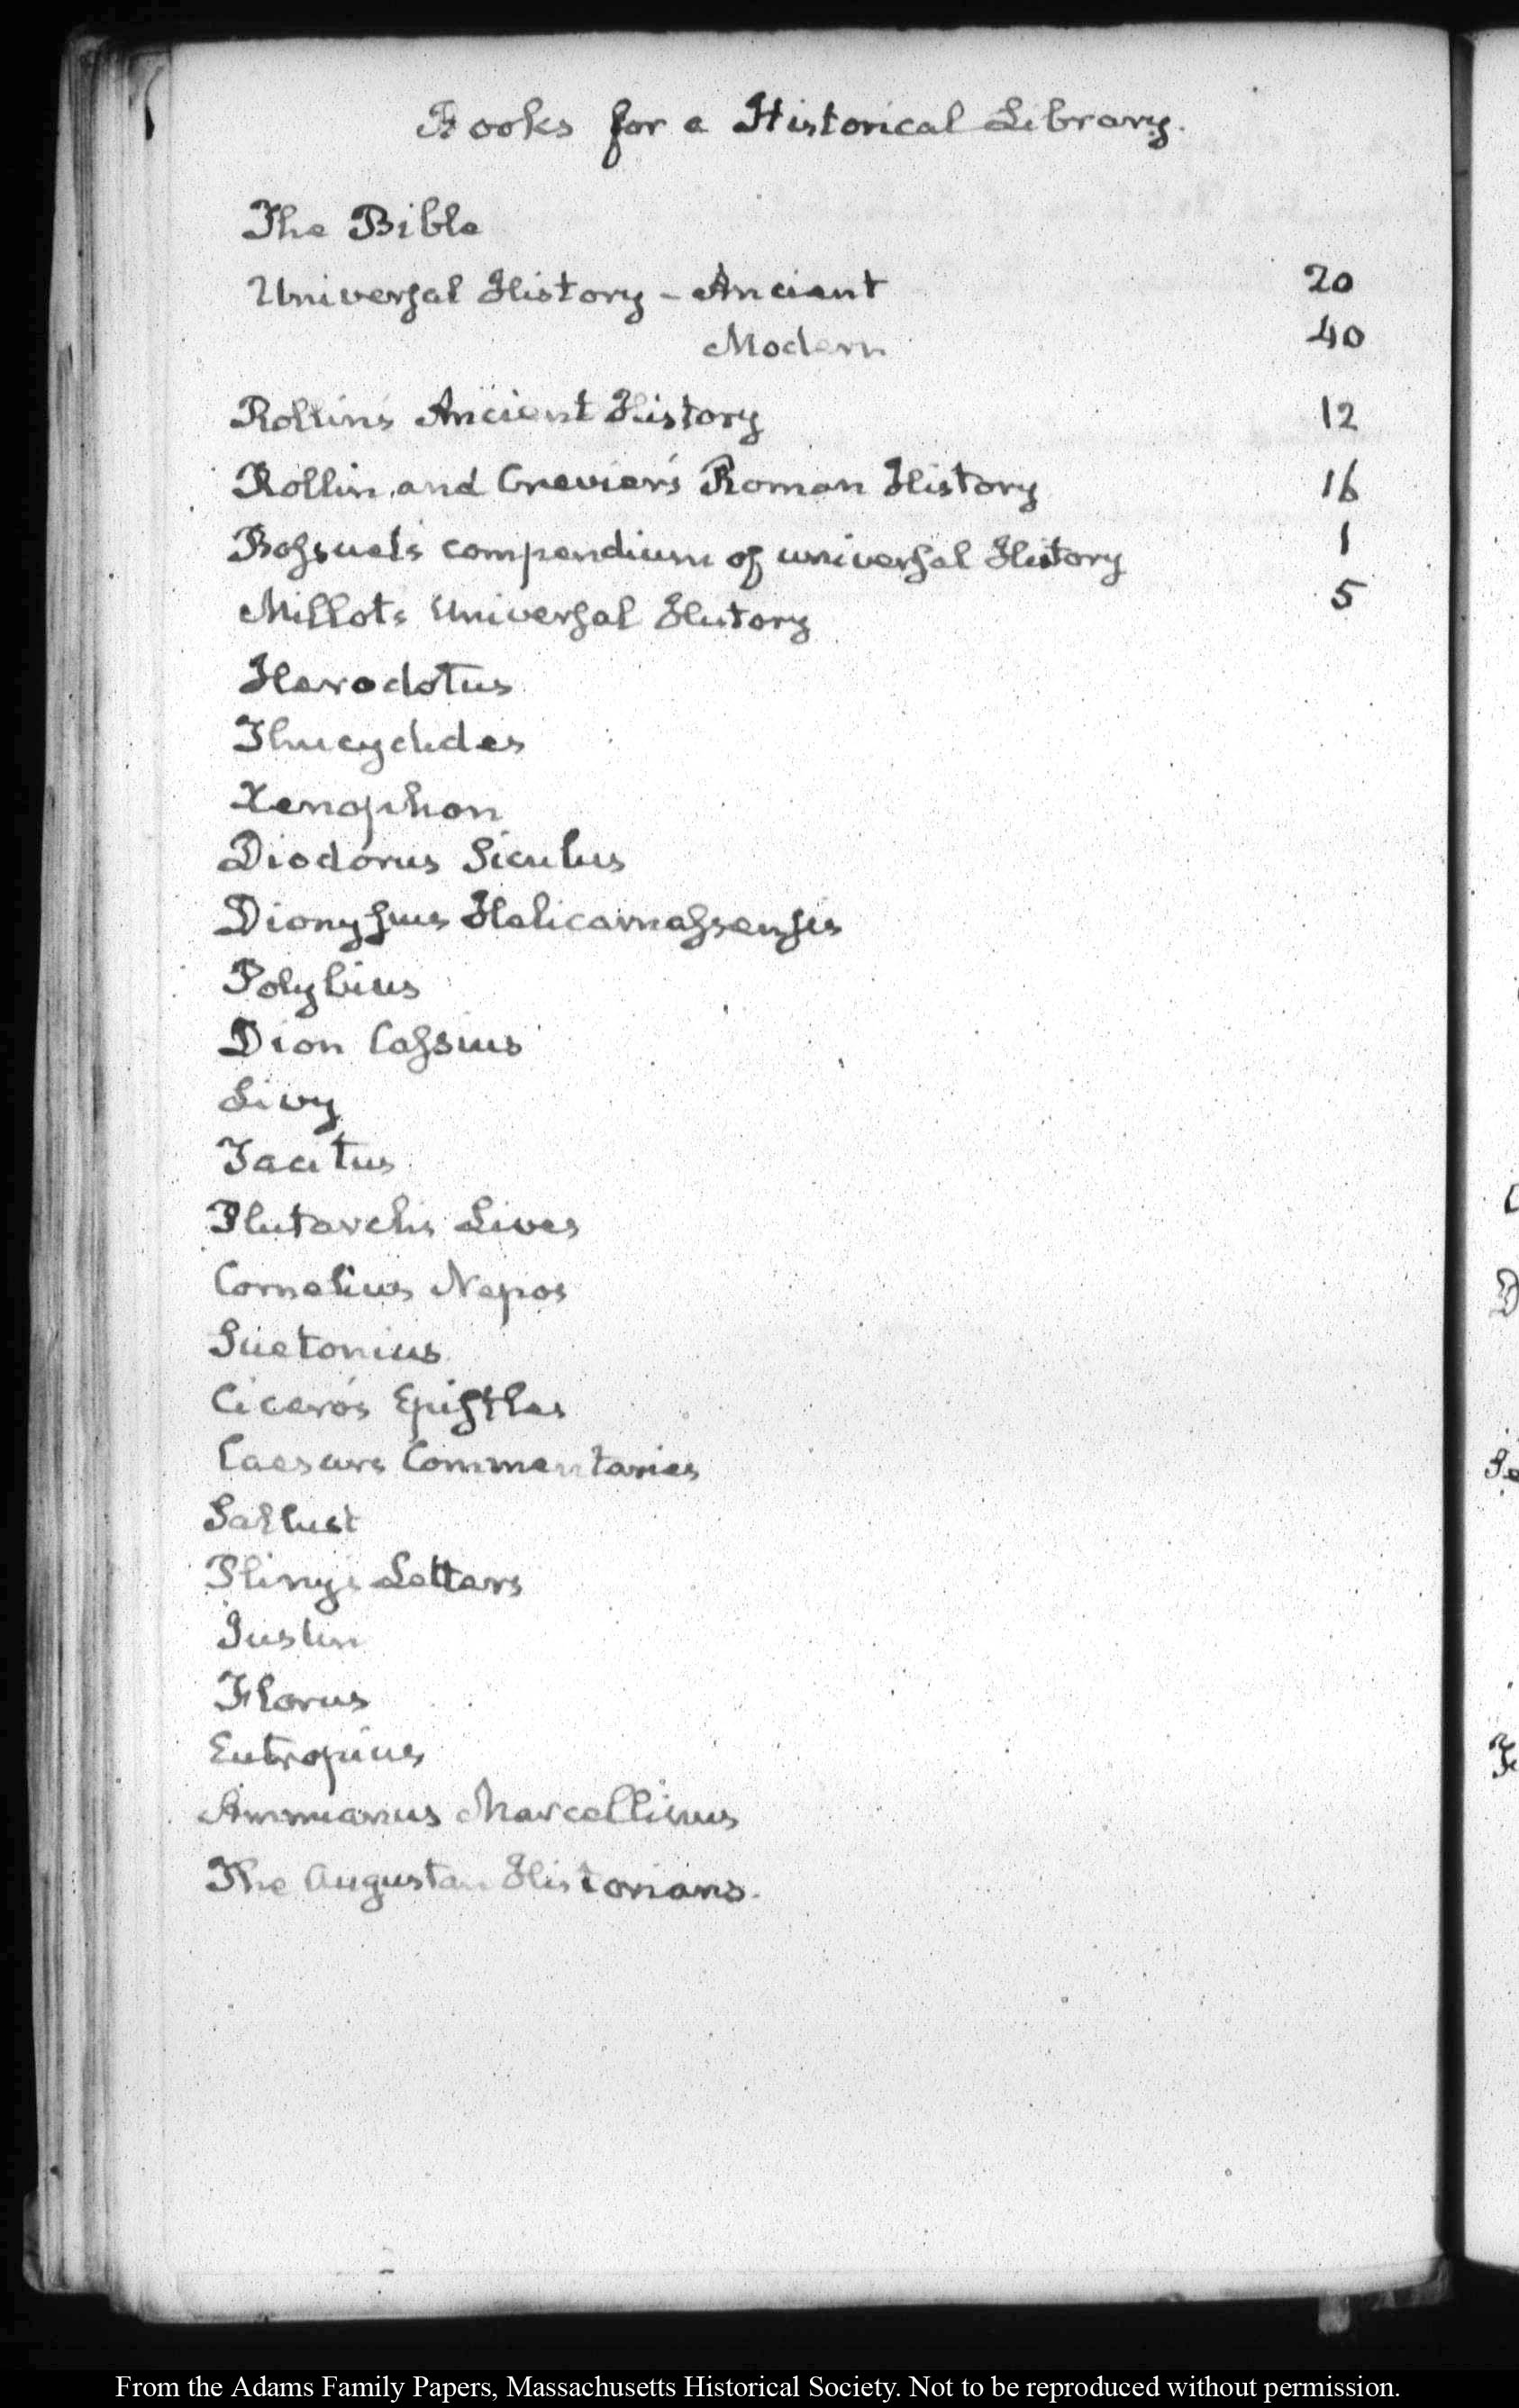 Books for a Historical Library.
The Bible
Universal History - Ancient 20
Modern 40
Rollin's Ancient History 12
Rollin and Crevier's Roman History 16
Bossuet's compendium of universal History 1
Millot's Universal History 5
Herodotus
Thucydides
Xenophon
Diodorus Siculus
Dionysius Halicarnassensis
Polybius
Dion Cassius
Livy
Tacitus
Plutarch's Lives
Cornelius Nepos
Suetonius
Cicero's Epistles
Caesars Commentaries
Sallust
Pliny's Letters
Justin
Florus
Eutropius
Ammianus Marcellinus
The Augustan Historians.
From the Adams Family Papers, Massachusetts Historical Society. Not to be reproduced without permission.